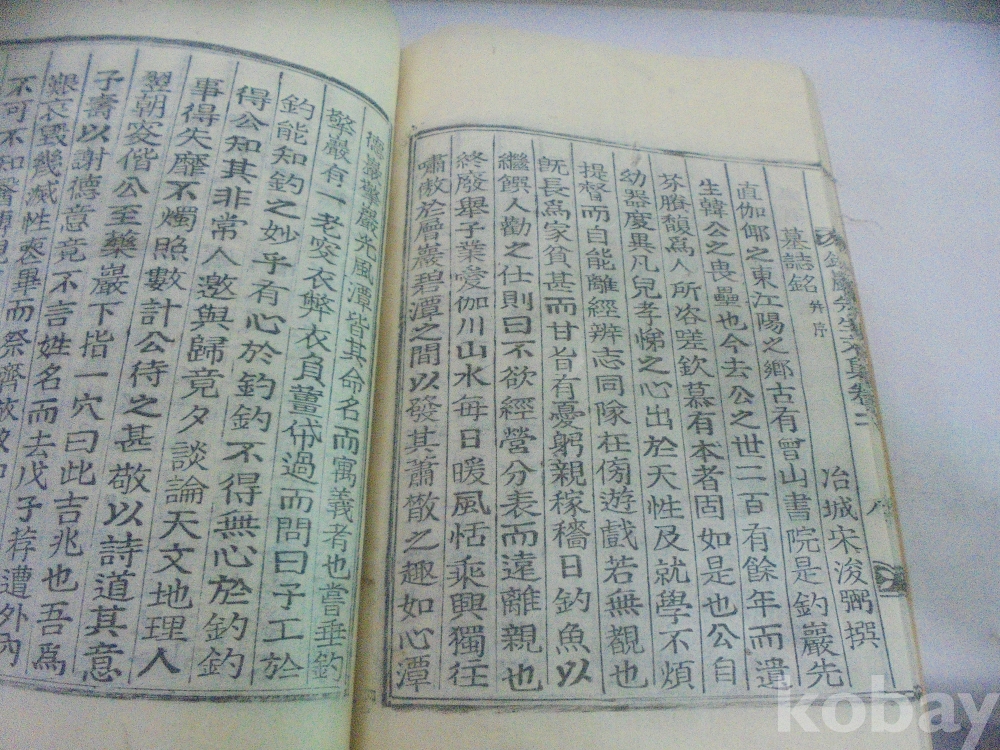 墓誌銘 幷序
冶城宋浚弼撰
直伽倻之東江陽之鄕古有曾山書院是釣巖先
生韓公之畏壘也今去公之世二百有餘年而遺
芬賸馥爲人所嗟欽慕有本者固如是也公自
幼器度異凡兒孝悌之心出於天性及就學不煩
提督而自能離經辨志同隊在傍遊戲若無覩也
旣長爲家貧甚而甘旨有憂躬親稼穡日釣魚以
繼饌人勸之仕則曰不欲經營分表而遠離親也
終廢擧子業愛伽川山水每日暖風恬乘興獨往
嘯傲於巖碧潭之間以發其蕭散之趣如心潭
德巖擎巖光風潭皆其命名而寓義者也嘗垂釣
擎巖有一老突衣弊衣負薑帒過而問曰子工於
釣能知釣之妙乎有心於釣釣不得無心於釣釣
得公知其非常人邀與歸竟夕談論天文地理人
事得失靡不燭照數計公待之甚敬以詩道其意
翌朝突偕公至藥巖下指一穴曰此吉兆也吾爲
子壽以謝德意竟不言姓名而去戊子荐遭外內
艱哀毁幾滅性喪畢而祭齊
不可不知醫
釣巖先生文集卷之二
八
kobay